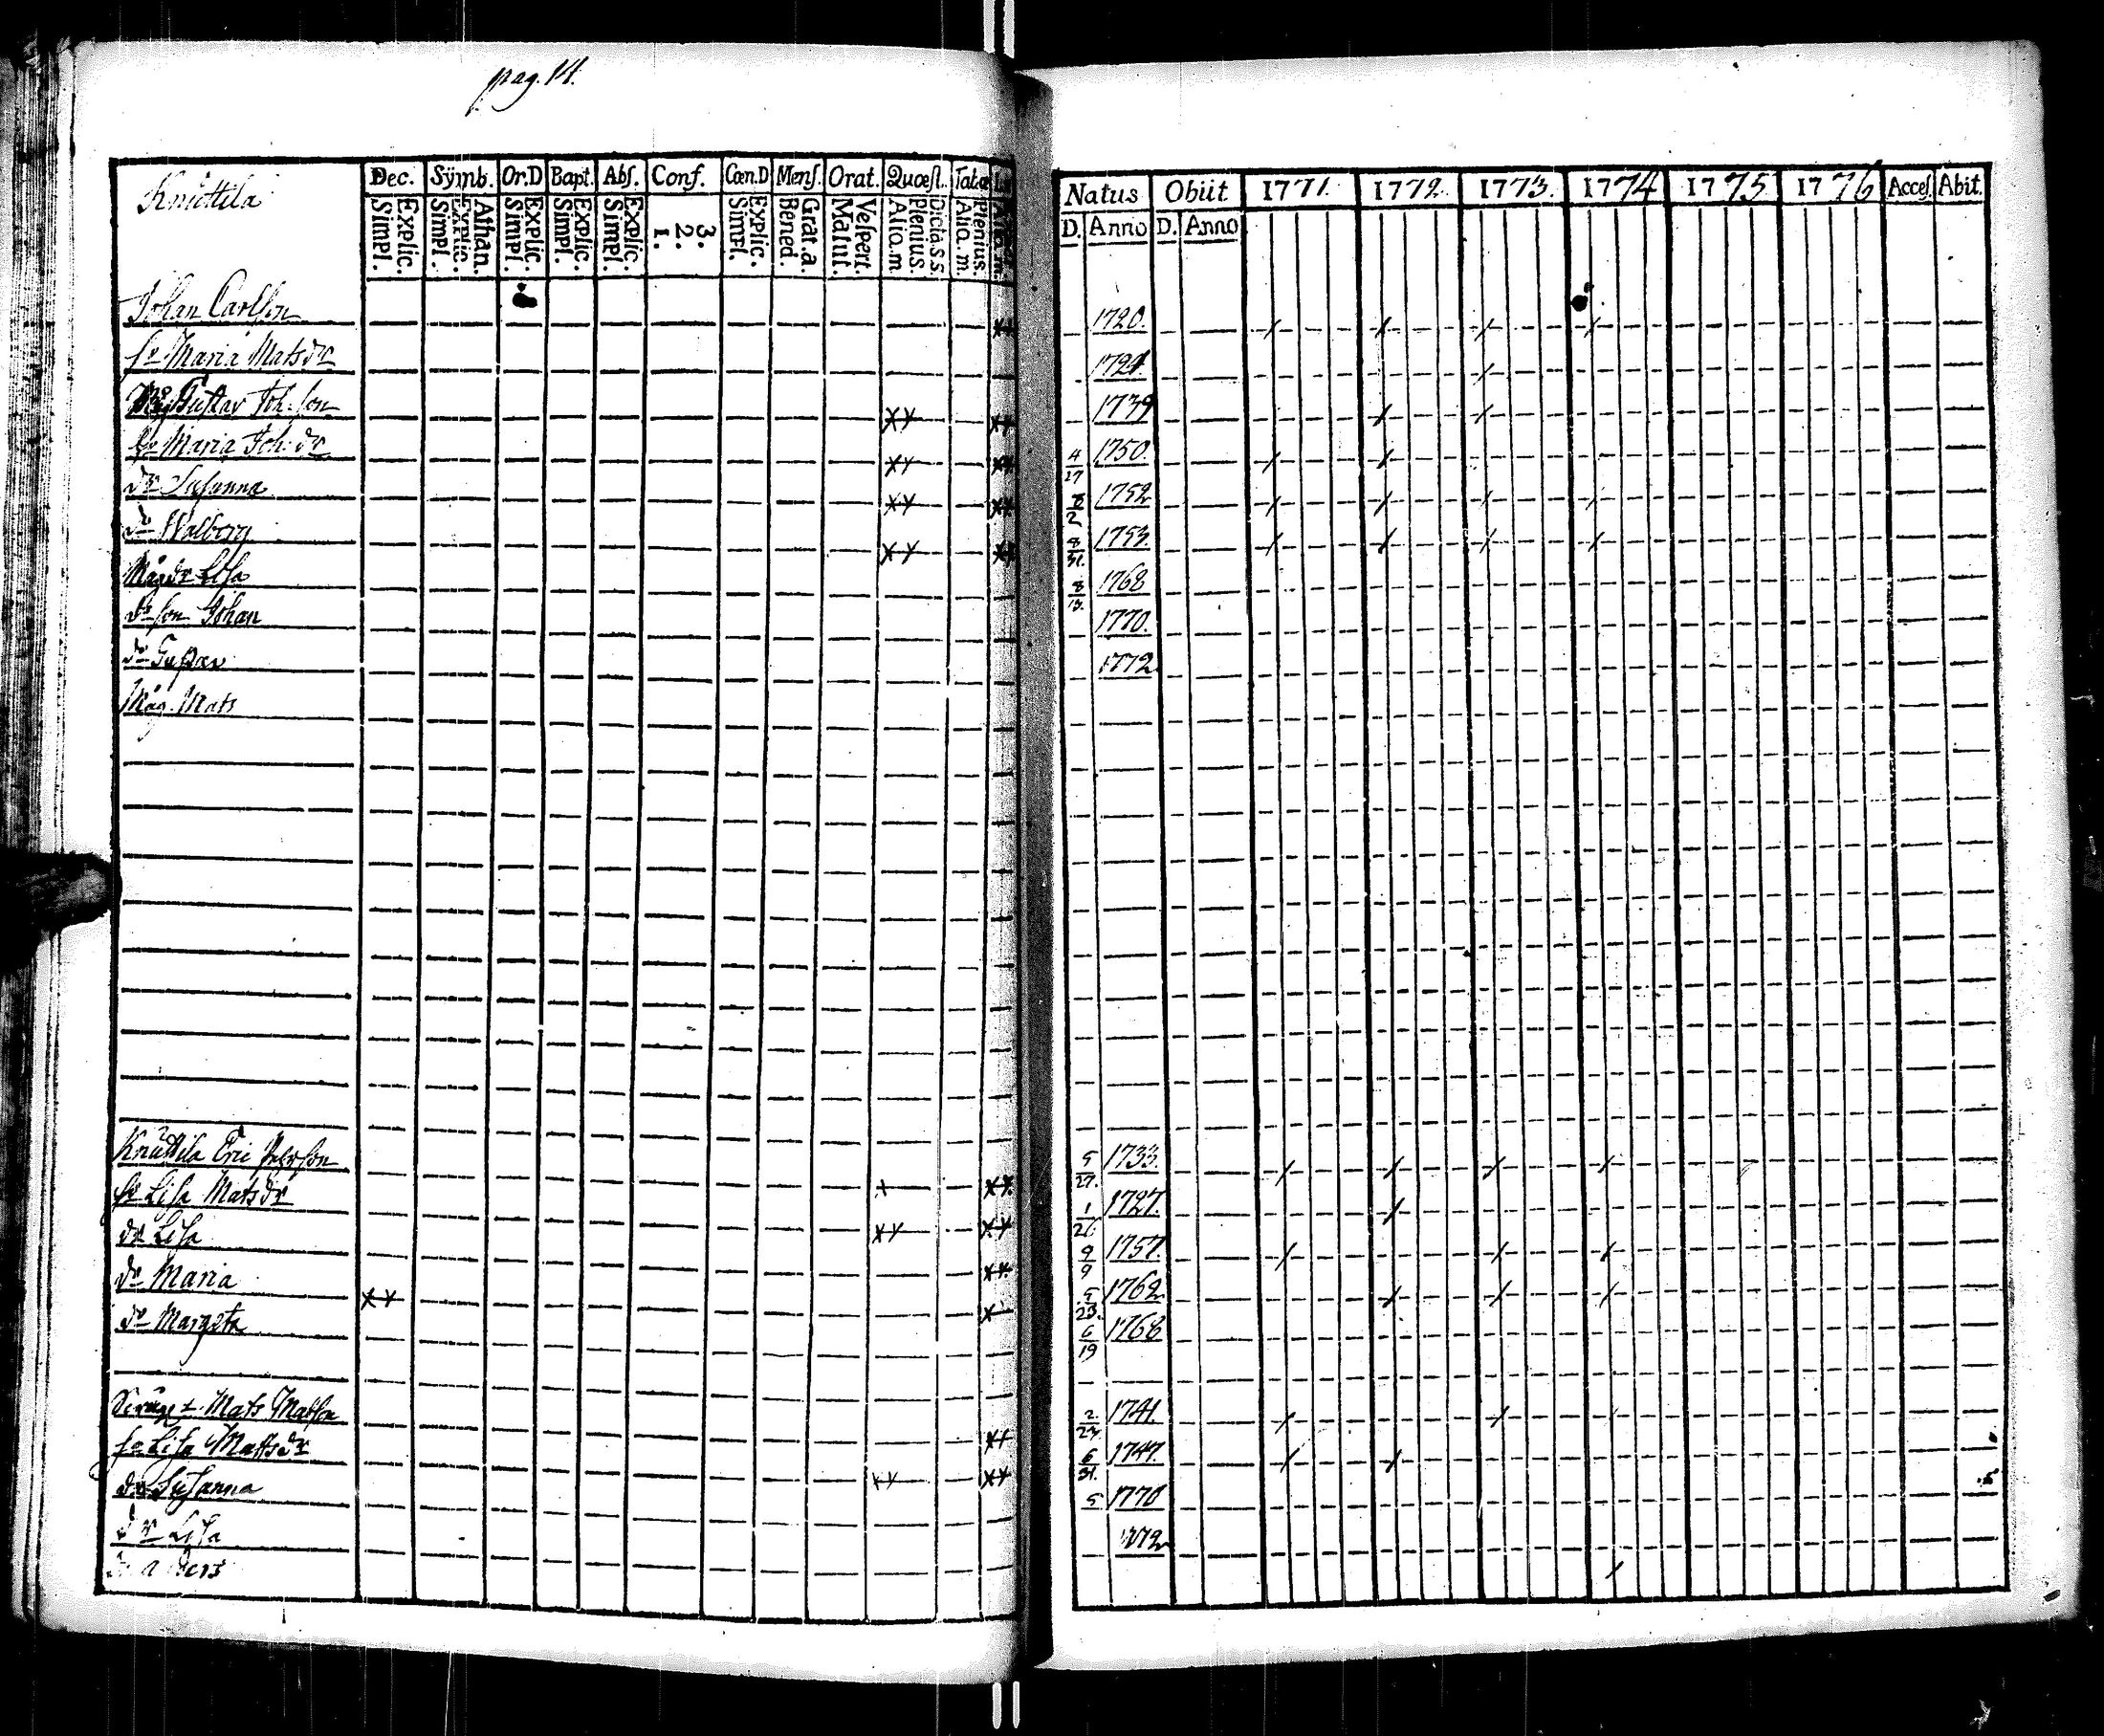 pag. 14.
Dec. Sÿmb. Or.D Bapt. Abſ. Conf. Cœn.D Menſ. Orat. Quœſt.
Simpl. Explic. Simpl. Explic. Athan. Simpl. Explic. Simpl. Explic. Simpl. Explic. 1. 2. 3. Simpl. Explic. Bened. Grat.a. Matut. Veſpert. Alio.m. Plenius. Dicta.s.s. Alio.m. Plenius.
Natus Obiit 1771. 1772. 1773. 1774 1775 1776 Acceſ. Abit.
D. Anno D. Anno
Knuttila
Johan Carlſon 1720.
hr Maria Matsdr
Måg Gustav Joh.ſon 1739
hr Maria Joh.dr 4/27 1750.
dr Suſanna 1752
dr Walborg 8/31. 1753.
Mågdr Liſa 8/13. 1768
dr ſon Johan 1770.
dr Gustav 1772
Måg. Mats
Knuttila Eric Pehrſon 5/27. 1733.
hr Liſa Matsdr 1727.
dr Liſa 9/9 1757
dr Maria 5/23. 1762
dr Margeta 6/19 1768
Mats Matſon 1741.
hr Liſa Mattsdr 6/31. 1747.
dr Suſanna 5 1770
dr Liſa 1772